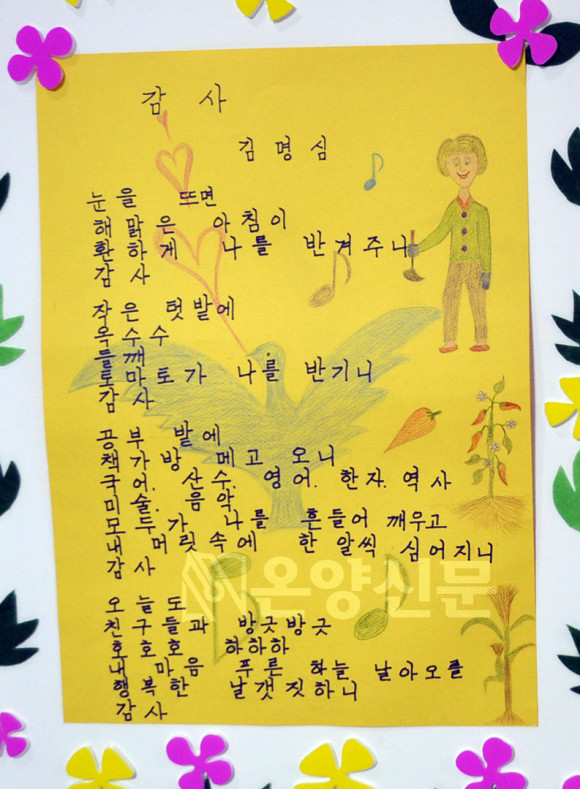 감 사
김 명 심
눈을 뜨면
해 맑은 아침이
환하게 나를 반겨주니
감 사
작은 텃밭에
옥수수
들깨
토마토가 나를 반기니
감 사
공부 밭에
책가방 메고 오니
국어. 산수. 영어. 한자. 역사
미술. 음악
모두가 나를 흔들어 깨우고
내 머릿속에 한 알씩 심어지니
감 사
온양신문
오늘도
친구들과 방긋방긋
호호호 하하하
내 마음 푸른 하늘 날아오를
행복한 날갯짓하니
감 사